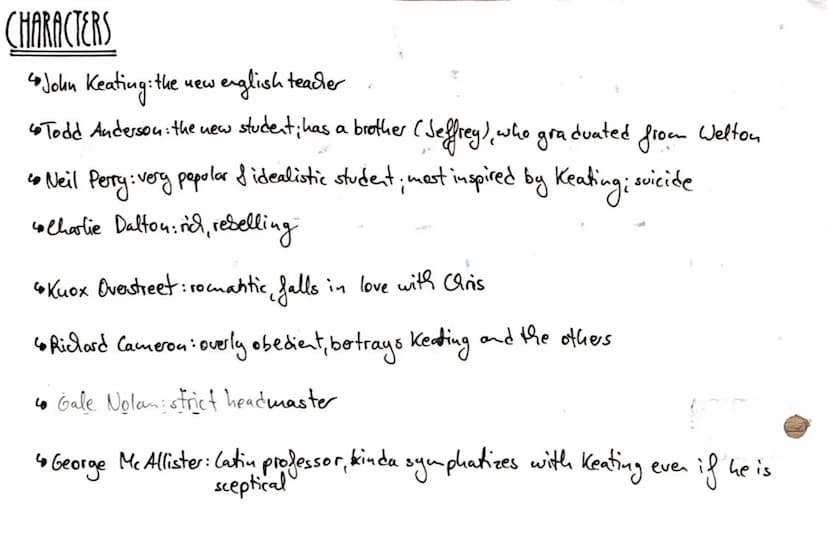 CHARACTERS
↳ John Keating: the new english teacher
↳ Todd Anderson: the new student; has a brother (Jeffrey), who graduated from Welton
↳ Neil Perry: very popular & idealistic student; most inspired by Keating; suicide
↳ Charlie Dalton: rich, rebelling
↳ Knox Overstreet: romantic, falls in love with Chris
↳ Richard Cameron: overly obedient, betrays Keating and the others
↳ Gale Nolan: strict headmaster
↳ George McAllister: Latin professor, kinda symphatizes with Keating even if he is
sceptical